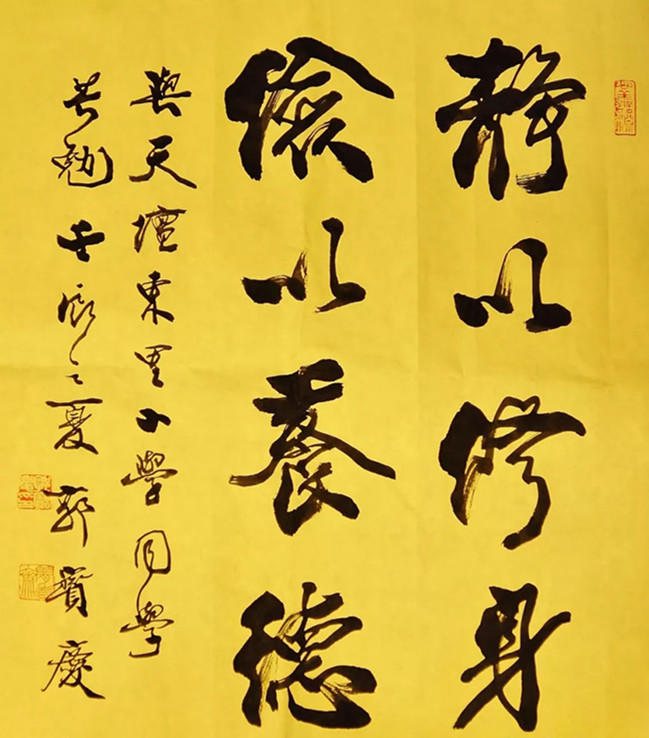 靜以修身
儉以養德
與天壇東里小學同學
共勉壬辰之夏郭寶慶